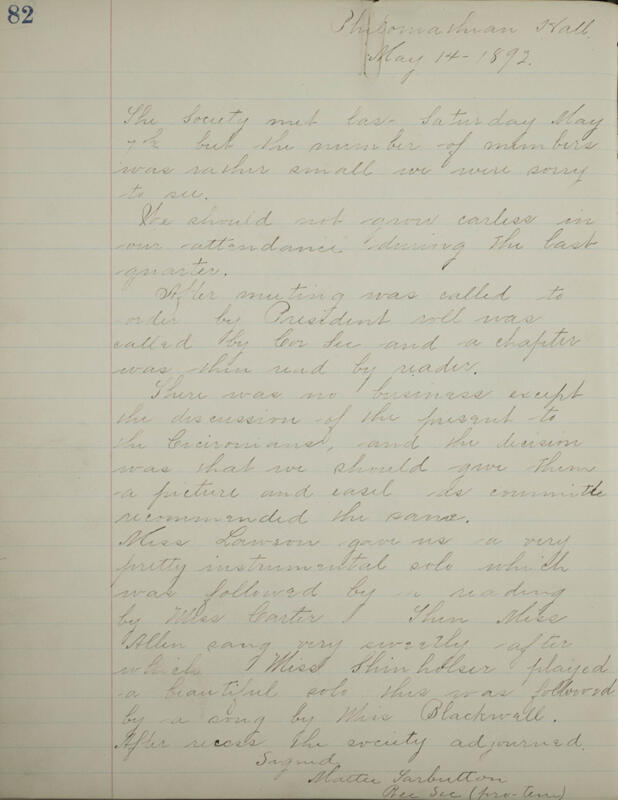 82
Philomathean Hall.
May 14 - 1892.
The Society met las- Saturday May
7th but the number of members
was rather small we were sorry
to see.
We should not grow carless in
our attendance during the last
quarter.
After meeting was called to
order by President roll was
called by Cor Sec and a chapter
was then read by reader.
There was no business except
the discussion of the present to
the Ciceronians, and the decision
was that we should give them
a picture and easel as committe
recommended the same.
Miss Lawson gave us a very
pretty instrumental solo which
was followed by a reading
by Miss Carter. Then Miss
Allen sang very sweetly after
which Miss Shinholser played
a beautiful solo this was followed
by a song by Miss Blackwell.
After recess the society adjourned.
Signed
Mattie Tarbutton
Rec Sec (pro-tem)